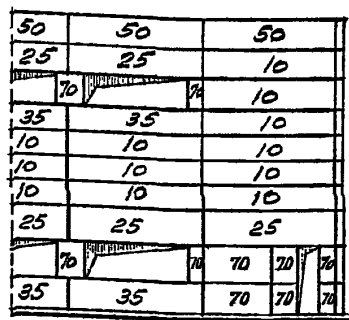 50 50 50
25 25 10
70 70 10
35 35 10
10 10 10
10 10 10
10 10 10
25 25 25
70 70 70 70 70
35 35 70 70 70